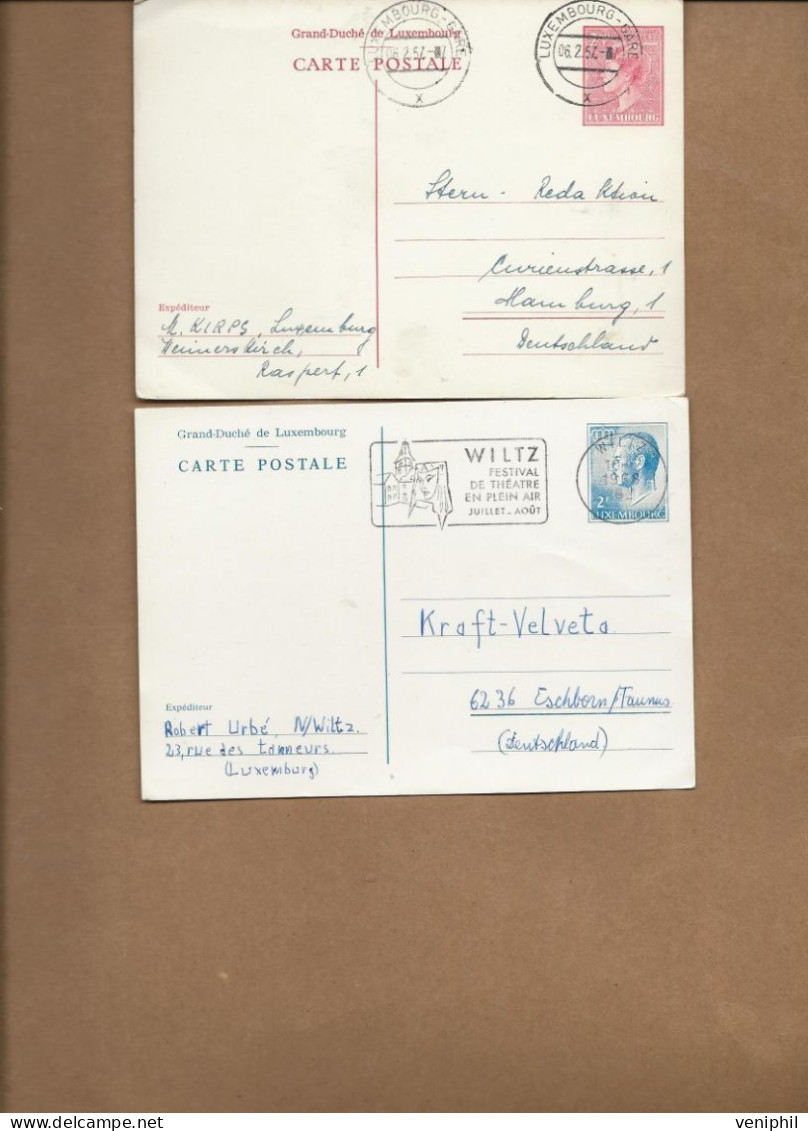 Grand-Duché de Luxembourg
CARTE POSTALE
LUXEMBOURG-GARE
06.2.57.
X
LUXEMBOURG-GARE
06.2.57.
X
LUXEMBOURG
Stern - Redaktion
Curienstrasse, 1
Hamburg, 1
Deutschland
Expéditeur
M. KIRPS, Luxemburg
Weimerskirch,
Raspert, 1
Grand-Duché de Luxembourg
CARTE POSTALE
WILTZ
FESTIVAL
DE THÉATRE
EN PLEIN AIR
JUILLET - AOÛT
WILTZ
1968
2F
LUXEMBOURG
Kraft-Velveta
6236 Eschborn/Taunus
(Deutschland)
Expéditeur
Robert Urbé, N/Wiltz
23, rue des tanneurs
(Luxemburg)
veniphil